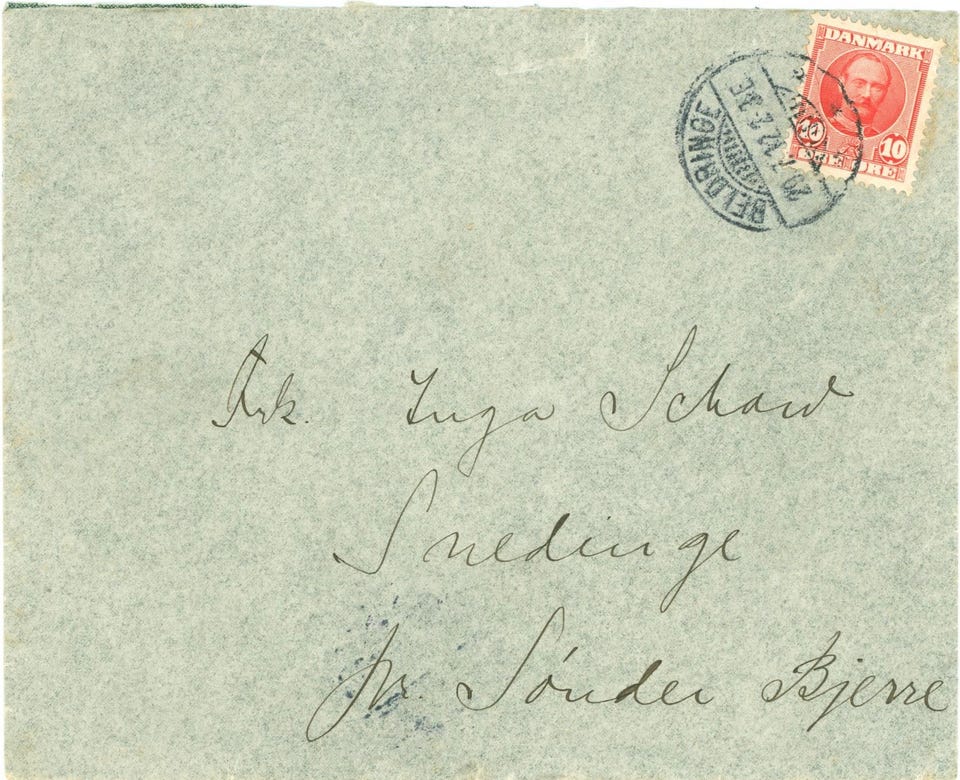 DANMARK
10 10
ØRE ØRE
BELDRINGE
Frk. Inga
Snedinge
pr. Sønder Bjerre